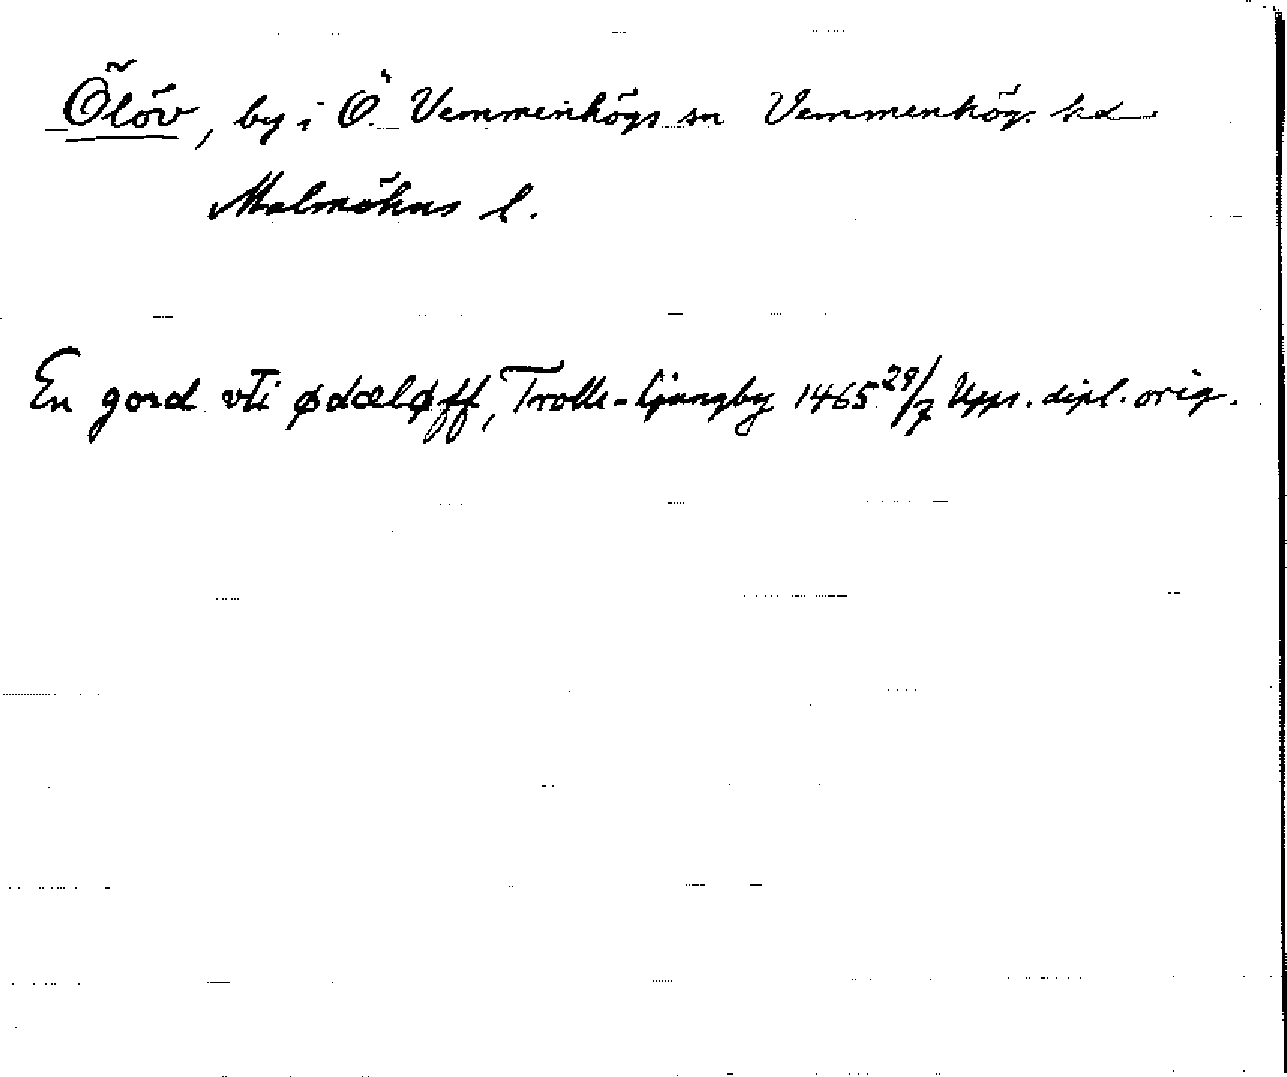 Ölöv, by i Ö. Vemmenhögs sn Vemmenhög. hd
Malmöhus l.
En gord vti ødæløff, Trolle-Ljungby 1465 29/7 Upps. dipl. orig.